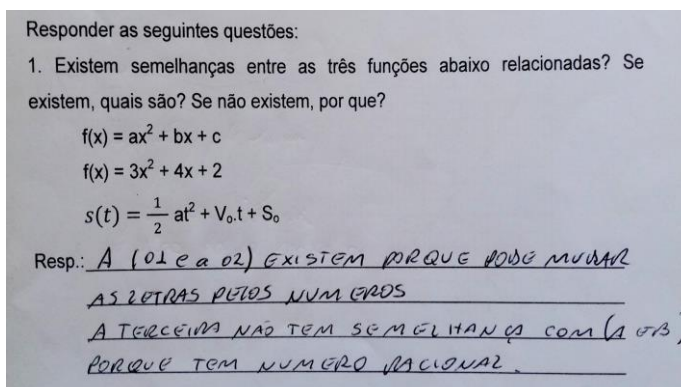 Responder as seguintes questões:
1. Existem semelhanças entre as três funções abaixo relacionadas? Se
existem, quais são? Se não existem, por que?
f(x) = ax² + bx + c
f(x) = 3x² + 4x + 2
s(t) = 1/2 at² + V₀.t + S₀
Resp.: A (01 e a 02) EXISTEM PORQUE PODE MUDAR
AS LETRAS PELOS NUMEROS
A TERCEIRA NÃO TEM SEMELHANÇA COM (A e B)
PORQUE TEM NUMERO RACIONAL.